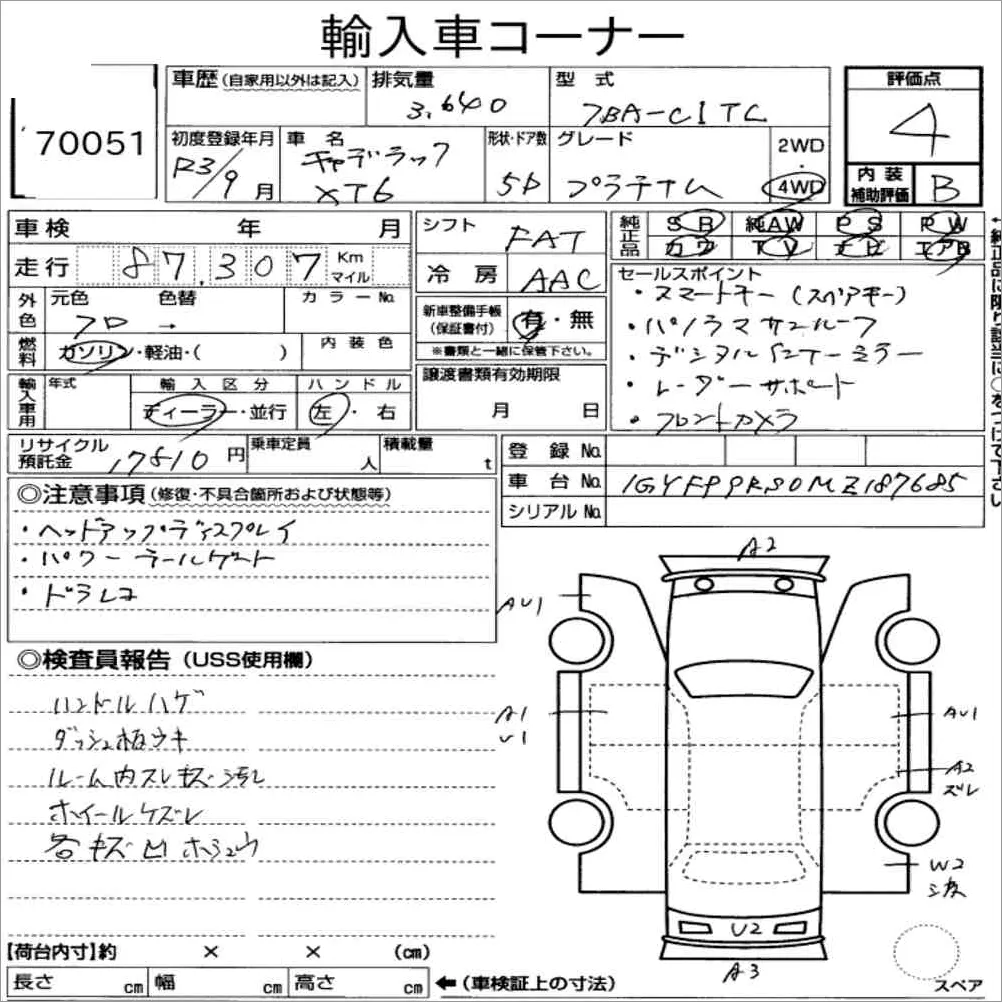 輸入車コーナー
70051
車歴(自家用以外は記入) 排気量 型式 評価点
3,640 7BA-C1TL 4
初度登録年月 車名 形状・ドア数 グレード 2WD・4WD
R3/9月 キャデラック XT6 5D プラチナム
内装補助評価 B
車検 年 月
走行 87,307 Km マイル
シフト FAT
冷房 AAC
純正品 SR 純AW PS PW
カワ TV ナビ エアB
外色 元色 色替 カラーNo.
クロ →
燃料 ガソリン・軽油・( ) 内装色
新車整備手帳(保証書付) 有・無
※書類と一緒に保管下さい。
セールスポイント
・スマートキー(スペアキー)
・パノラマサンルーフ
・デジタルインナーミラー
・レーダーサポート
・フロントカメラ
輸入車用 年式 輸入区分 ハンドル
ディーラー・並行 左・右
譲渡書類有効期限
月 日
リサイクル預託金 17810円 乗車定員 人 積載量 t
登録No.
車台No. 1GYFPPRS0MZ187685
シリアルNo.
←純正品に限り該当に○をつけて下さい
◎注意事項(修復・不具合箇所および状態等)
・ヘッドアップディスプレイ
・パワーテールゲート
・ドラレコ
◎検査員報告(USS使用欄)
ハンドルハゲ
ダッシュ板ウキ
ルーム内スレキズ・汚レ
ホイールケズレ
各キズ凹ホシュウ
A2
AU1
A1
U1
AU1
A2
ズレ
W2
U2
A3
スペア
【荷台内寸】約 × × (cm)
長さ cm 幅 cm 高さ cm ←(車検証上の寸法)